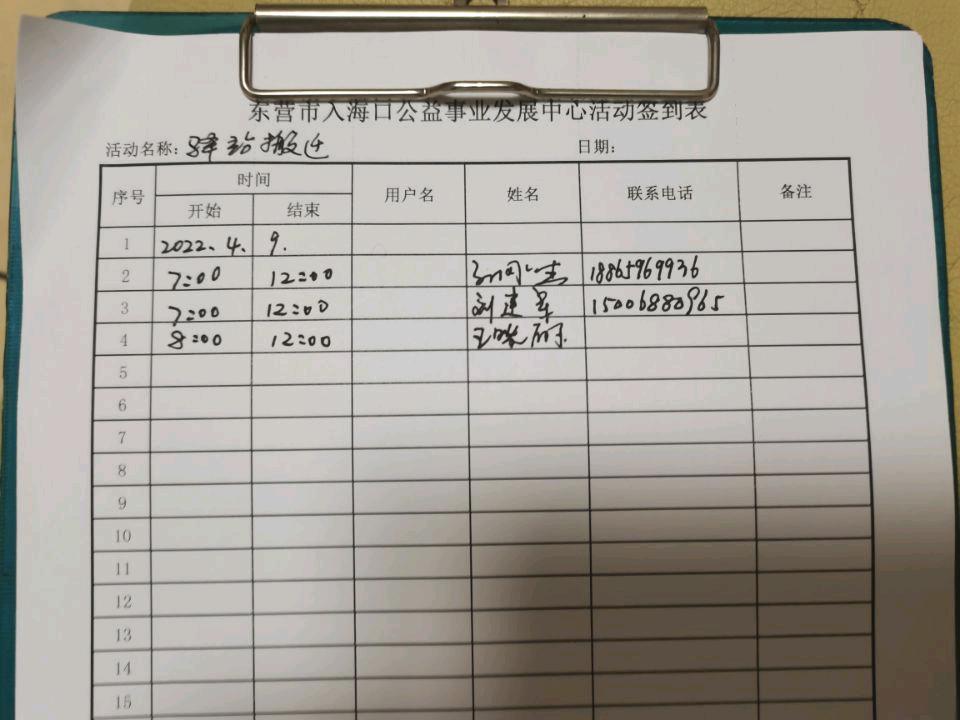 东营市入海口公益事业发展中心活动签到表
活动名称: 驿站搬迁 日期:
序号 时间 用户名 姓名 联系电话 备注
开始 结束
1 2022.4. 9.
2 7:00 12:00 18865969936
3 7:00 12:00 刘建军 15006880965
4 8:00 12:00 王
5
6
7
8
9
10
11
12
13
14
15